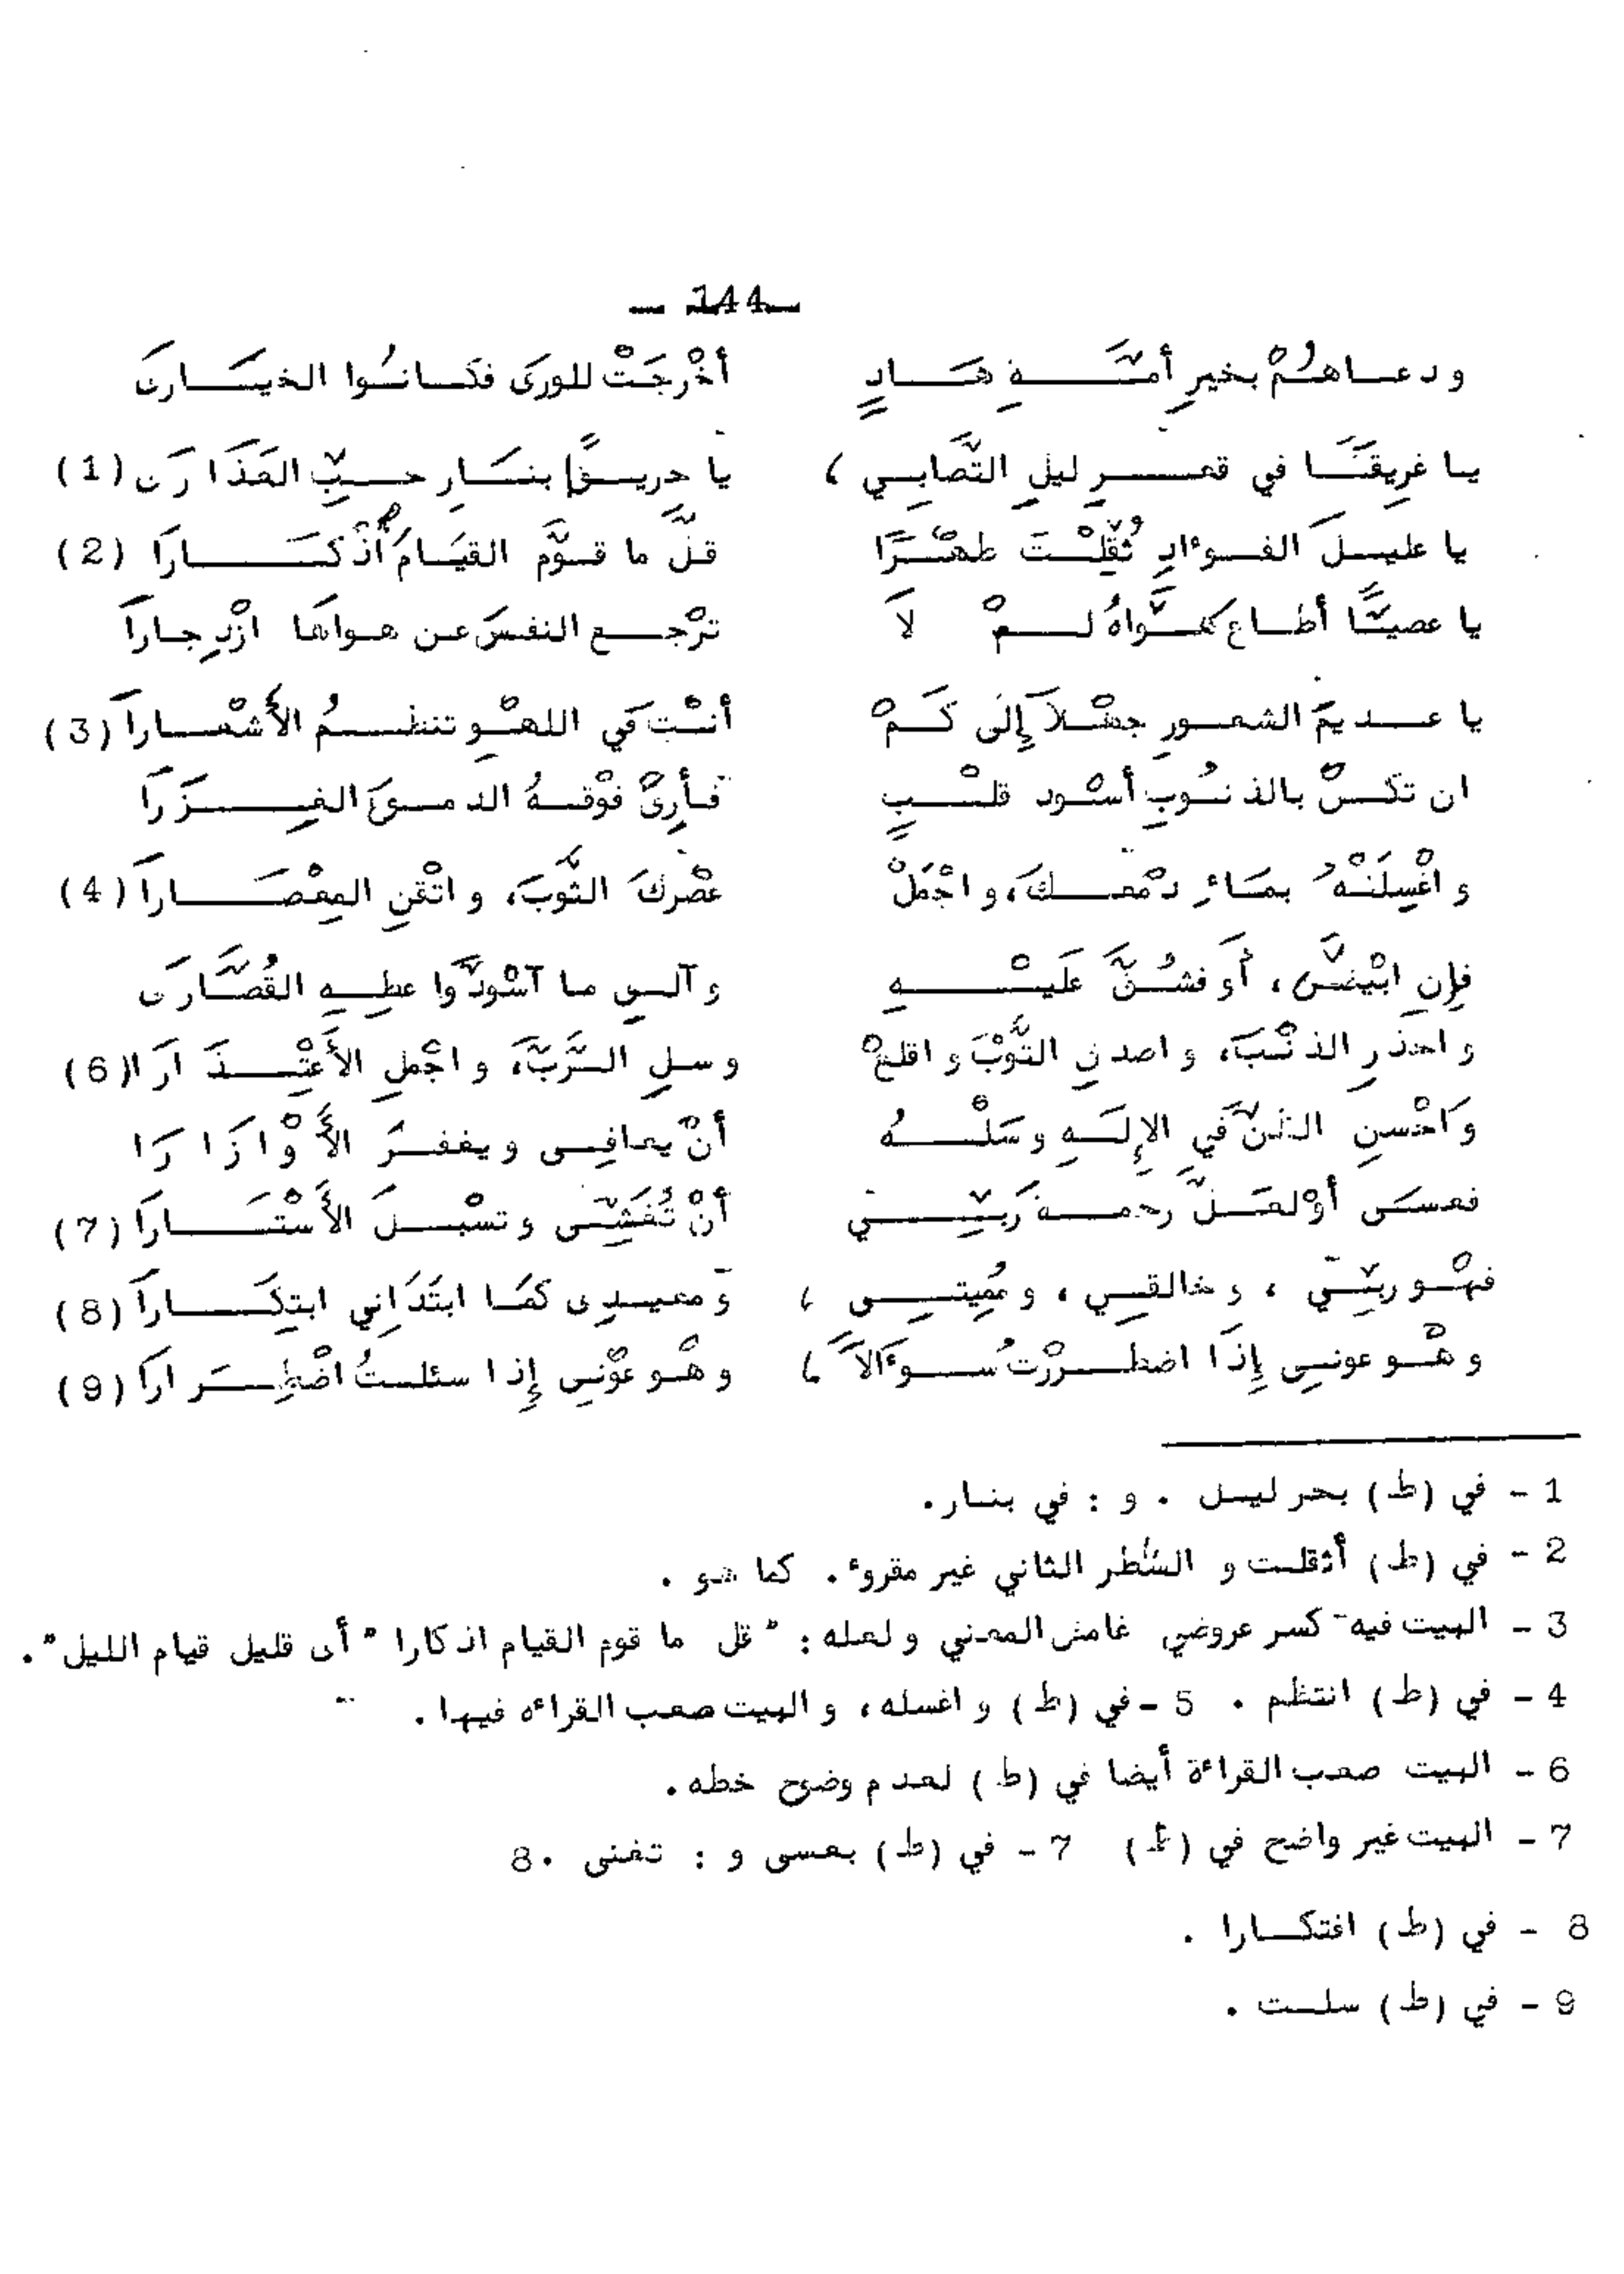 — 144—
ودعاهُمْ بخيرِ أمَّةِ هَادٍ أخْرجَتْ للورىَ فكانُوا الخيَارىَ
يا غرِيقَنَا في قعرِ ليلِ التَّصابِي ، يا حرِيقًا بنَارِ حبِّ العَذَارَى (1)
يا عليلَ الفوءادِ ثُقِّلْتَ ظهْرًا قلَّ ما قوَّم القيَامَ أذْكَارَا (2)
يا عصيًّا أطاع هَواهُ لمْ لاَ ترْجع النفسَ عن هواهَا ازْدِجاراَ
يا عديمَ الشعورِ جهْلاً إِلَى كَمْ أنتْ في اللهْوِ تنظمُ الأَشْعاراَ (3)
ان تكنْ بالذنُوبِ أسْود قلْبٍ فأرِقْ فوْقهُ الدموعَ الغِزَرَا
و اغْسِلَنْهُ بمَاءِ دمْعكَ، و اجْمَلْ عصْركَ الثَّوبَ، و اتْقنِ المِعْصَاراَ (4)
فإِن ابْيضَّ، أَو فشُنَّ عَليْهِ و آلي ما آسْودَّوا عطِهِ القُصَّارَى
و احذرِ الذنْبَ، و اصدنِ التَّوْبَ و اقلعْ وسلِ الرَّبَّ، و اجْملِ الأَعْتِذَ ارَا (6)
وَاحْسنِ الظنَّ فَي الإِلَهِ وسَلْهُ أنْ يعافِى ويغفرَ الأَوْ ازَارَا
فعسَى أوْلعَلَّ رحمةَ رَبِّي أنْ تُغَشِّى و تسْبلَ الأَسْتَارَا (7)
فهْو ربِّي ، و خالقِي ، و مُمِيتِى ، وَ معيدِى كمَا ابتَدَاني ابتِكَاراَ (8)
و هْو عونِى إِذَا اضطررْتُ سوءَالاً ، وهْو عوْنِى إِذا سئلتُ اضْطِرَاراَ (9)
1 - في (ط) بحر ليل . و : في بنار.
2 - في (ط) أثقلت و الشطر الثاني غير مقروء . كما هو .
3 - البيت فيه كسر عروضي غامض المعنى ولعله : " قل ما قوم القيام اذكارا " أى قليل قيام الليل".
4 - في (ط) انتظم . 5 - في (ط) و اغسله، و البيت صعب القراءه فيها .
6 - البيت صعب القراءة أيضا في (ط) لعدم وضوح خطه.
7 - البيت غير واضح في (ط) 7 - في (ط) بعسى و : تغنى .8
8 - في (ط) افتكارا .
9 - في (ط) سلت .